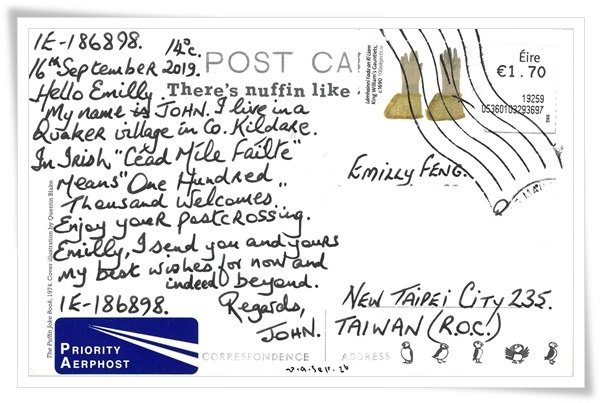 IE-186898. 14°c.
16th September 2019.
Hello Emilly
My name is JOHN. I live in a
Quaker village in Co. Kildare.
In Irish "Céad Míle Failte"
Means "One Hundred
Thousand Welcomes."
Enjoy your postcrossing.
Emilly, I send you and yours
my best wishes for now and
indeed beyond.
IE-186898. Regards,
JOHN.
PRIORITY
AERPHOST
The Puffin Joke Book, 1974. Cover illustration by Quentin Blake
POST CA
There's nuffin like
King William's Gauntlets,
c1690
Éire
€1.70
19259
05360103293697
EMILLY FENG.
NEW TAIPEI CITY 235.
TAIWAN (R.O.C.)
CORRESPONDENCE
ADDRESS